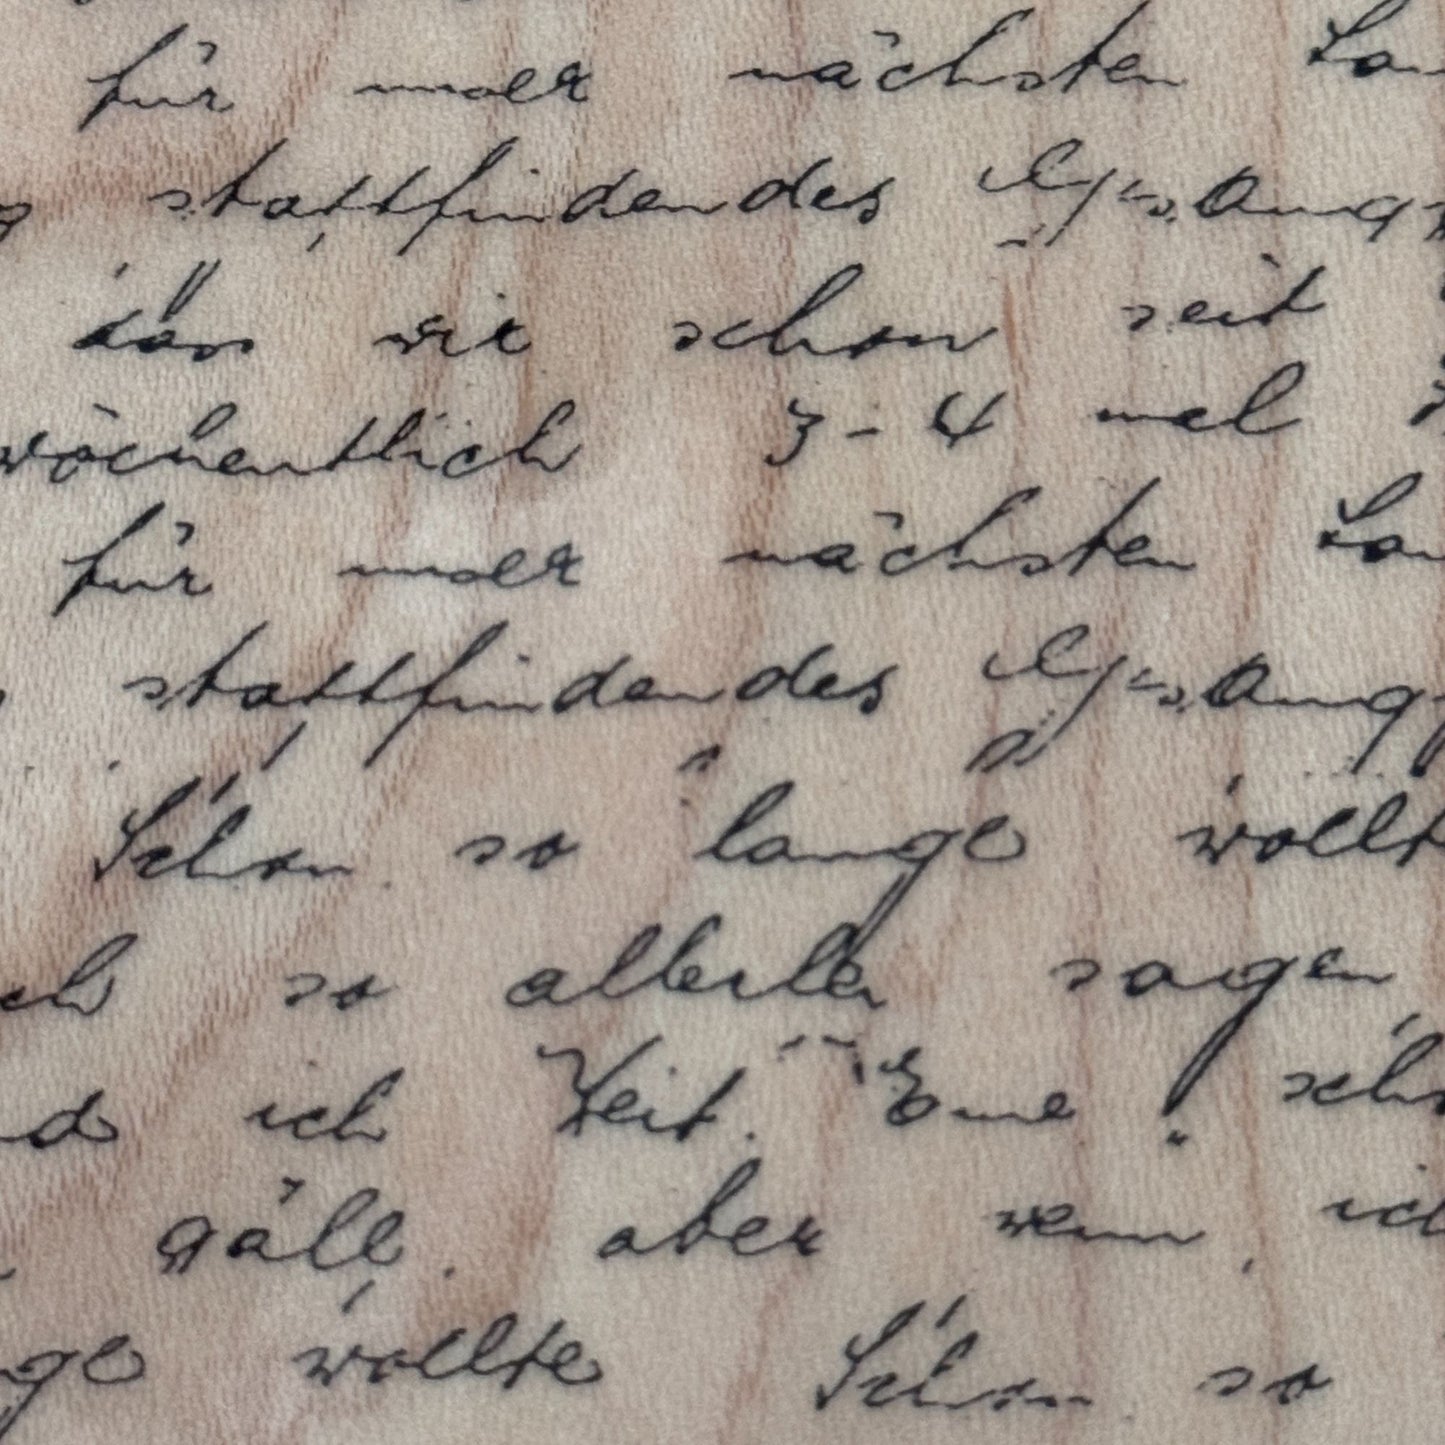 für unser nächsten
stattfindendes Gesang
das wir schon seit
wöchentlich 3-4 mal
für unser nächsten
stattfindendes Gesang
Schon so lange wollt
ch so allerlei sagen
d ich Zeit. Eine sch
gäll. aber wenn ic
ge wollte Schon so